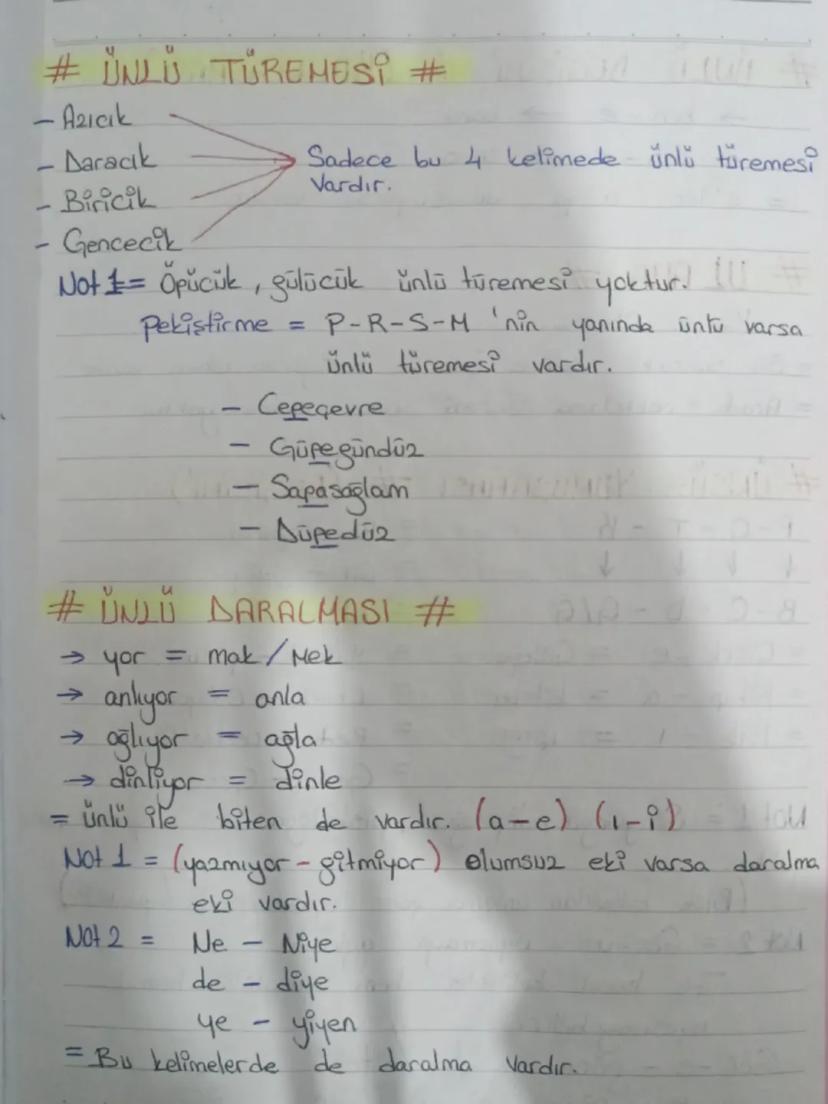 # ÜNLÜ TÜREMESİ #
- Azıcık
- Daracık
Sadece bu 4 kelimede ünlü türemesi
vardır.
- Biricik
- Gencecik
Not 1 = Öpücük, gülücük ünlü türemesi yoktur.
Pekiştirme = P-R-S-M 'nin yanında üntü varsa
ünlü türemesi vardır.
- Çepeçevre
- Güpegündüz
- Sapasağlam
- Düpedüz
# ÜNLÜ DARALMASI #
→ yor = mak/Mek
→ anlıyor = anla
→ ağlıyor = ağla
→ dinliyor = dinle
= Ünlü ile biten de vardır. (a-e) (ı-i)
Not 1 = (yazmıyor - gitmiyor) olumsuz eki varsa daralma
eki vardır.
Not 2 = Ne - Niye
de - diye
ye - yiyen
= Bu kelimelerde de daralma vardır.